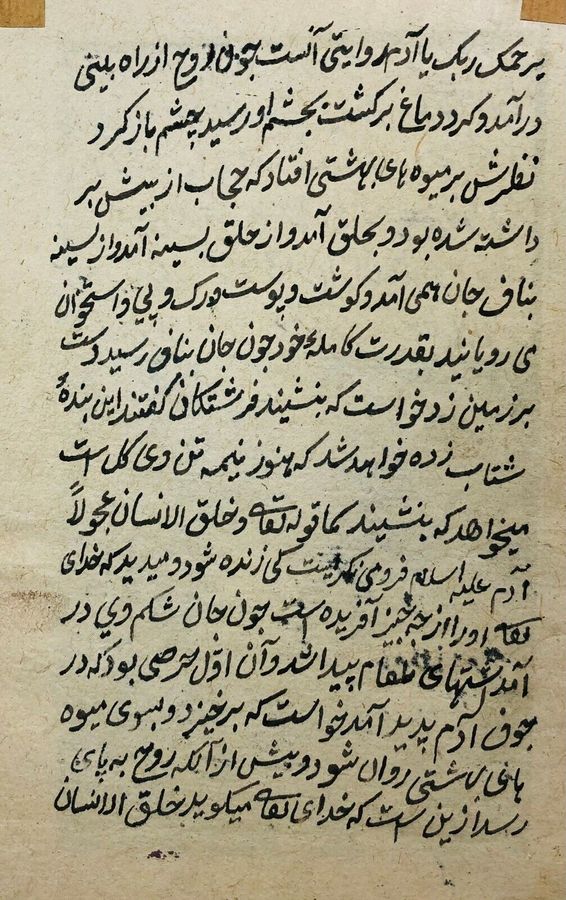 یرحمک ربک یا آدم روایتی آنست چون روح از راه بینی
درآمد و کرد دماغ برکشت بچشم او رسید چشم باز کرد
نظرش بر میوه های بهشتی افتاد که حجاب از پیش بر
داشته شده بود و بحلق آمد و از حلق بسینه آمد و از سینه
بناف جان همی آمد و کوشت و پوست و رک و پی و استخوان
می رویانید بقدرت کامله خود چون جان بناف رسید دست
بر زمین زد خواست که بنشیند فرشتکان کفتند این بندهٔ
شتاب زده خواهد شد که هنوز نیمه تن وی کل است
میخواهد که بنشیند کما قوله تعالی و خلق الانسان عجولاً
آدم علیه السلام فرو می نکریست کی زنده شود و میدید که خدای
تعالی او را از چه چیز آفریده است چون جان شکم وی در
آمد اشتهای طعام پیدا شد و آن اول حرصی بود که در
جوف آدم پدید آمد خواست که برخیزد و بسوی میوه
های بهشتی روان شود و پیش از آنکه روح به پای
رسد ازین است که خدای تعالی میکوید خلق الانسان